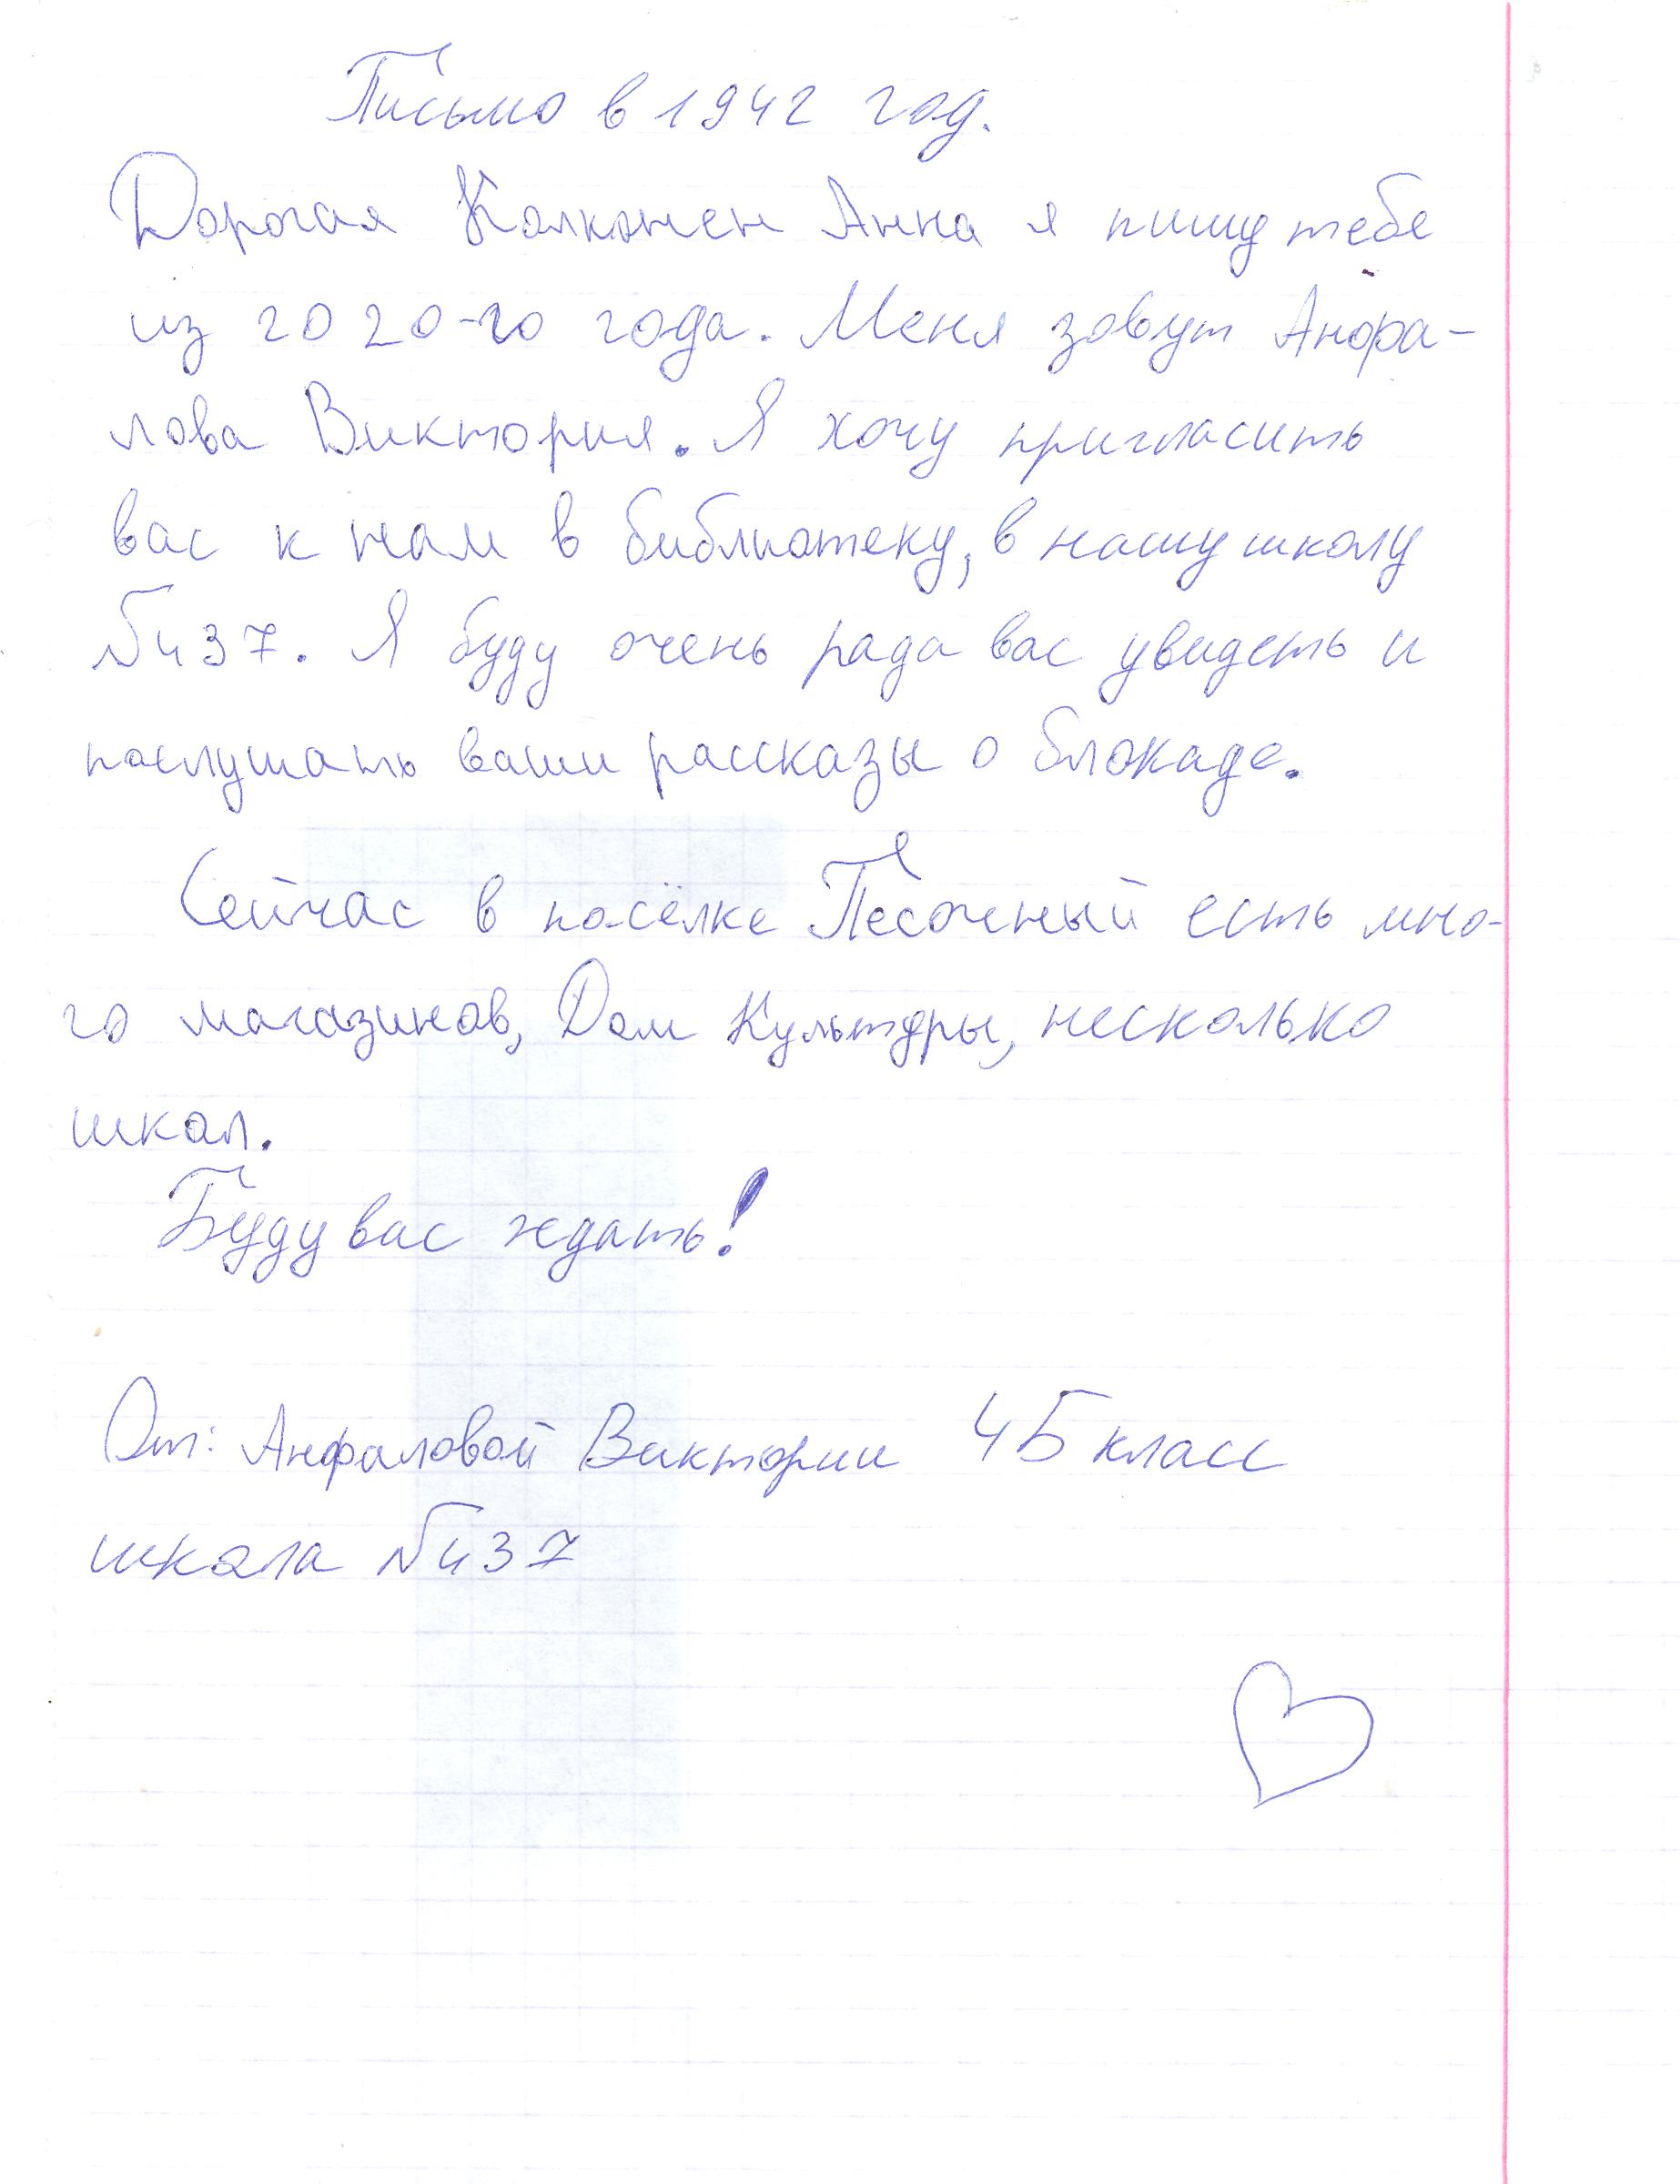 Письмо в 1942 год.
Дорогая Колконен Анна я пишу тебе
из 2020-го года. Меня зовут Анфа-
лова Виктория. Я хочу пригласить
вас к нам в библиотеку, в нашу школу
№437. Я буду очень рада вас увидеть и
послушать ваши рассказы о блокаде.
Сейчас в посёлке Песочный есть мно-
го магазинов, Дом Культуры, несколько
школ.
Буду вас ждать!
От: Анфаловой Виктории 4Б класс
школа №437